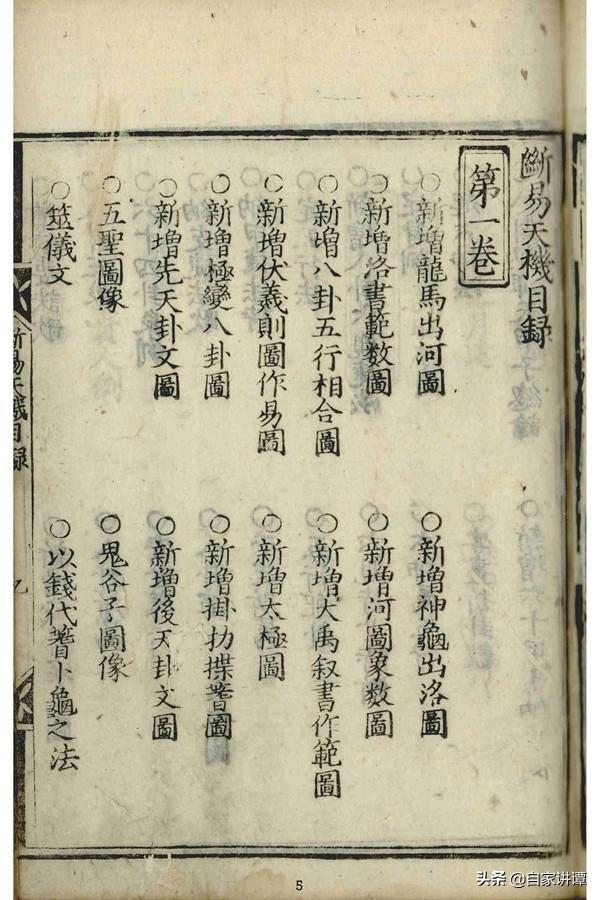 斷易天機目録
第一卷
○新增龍馬出河圖
○新增神龜出洛圖
○新增洛書範數圖
○新增河圖象數圖
○新增八卦五行相合圖
○新增大禹叙書作範圖
○新增伏羲則圖作易圖
○新增太極圖
○新增極變八卦圖
○新增掛扐揲蓍圖
○新增先天卦文圖
○新增後天卦文圖
○五聖圖像
○鬼谷子圖像
○筮儀文
○以錢代蓍卜龜之法
斷易天機目録
5
头条 @自家讲谭